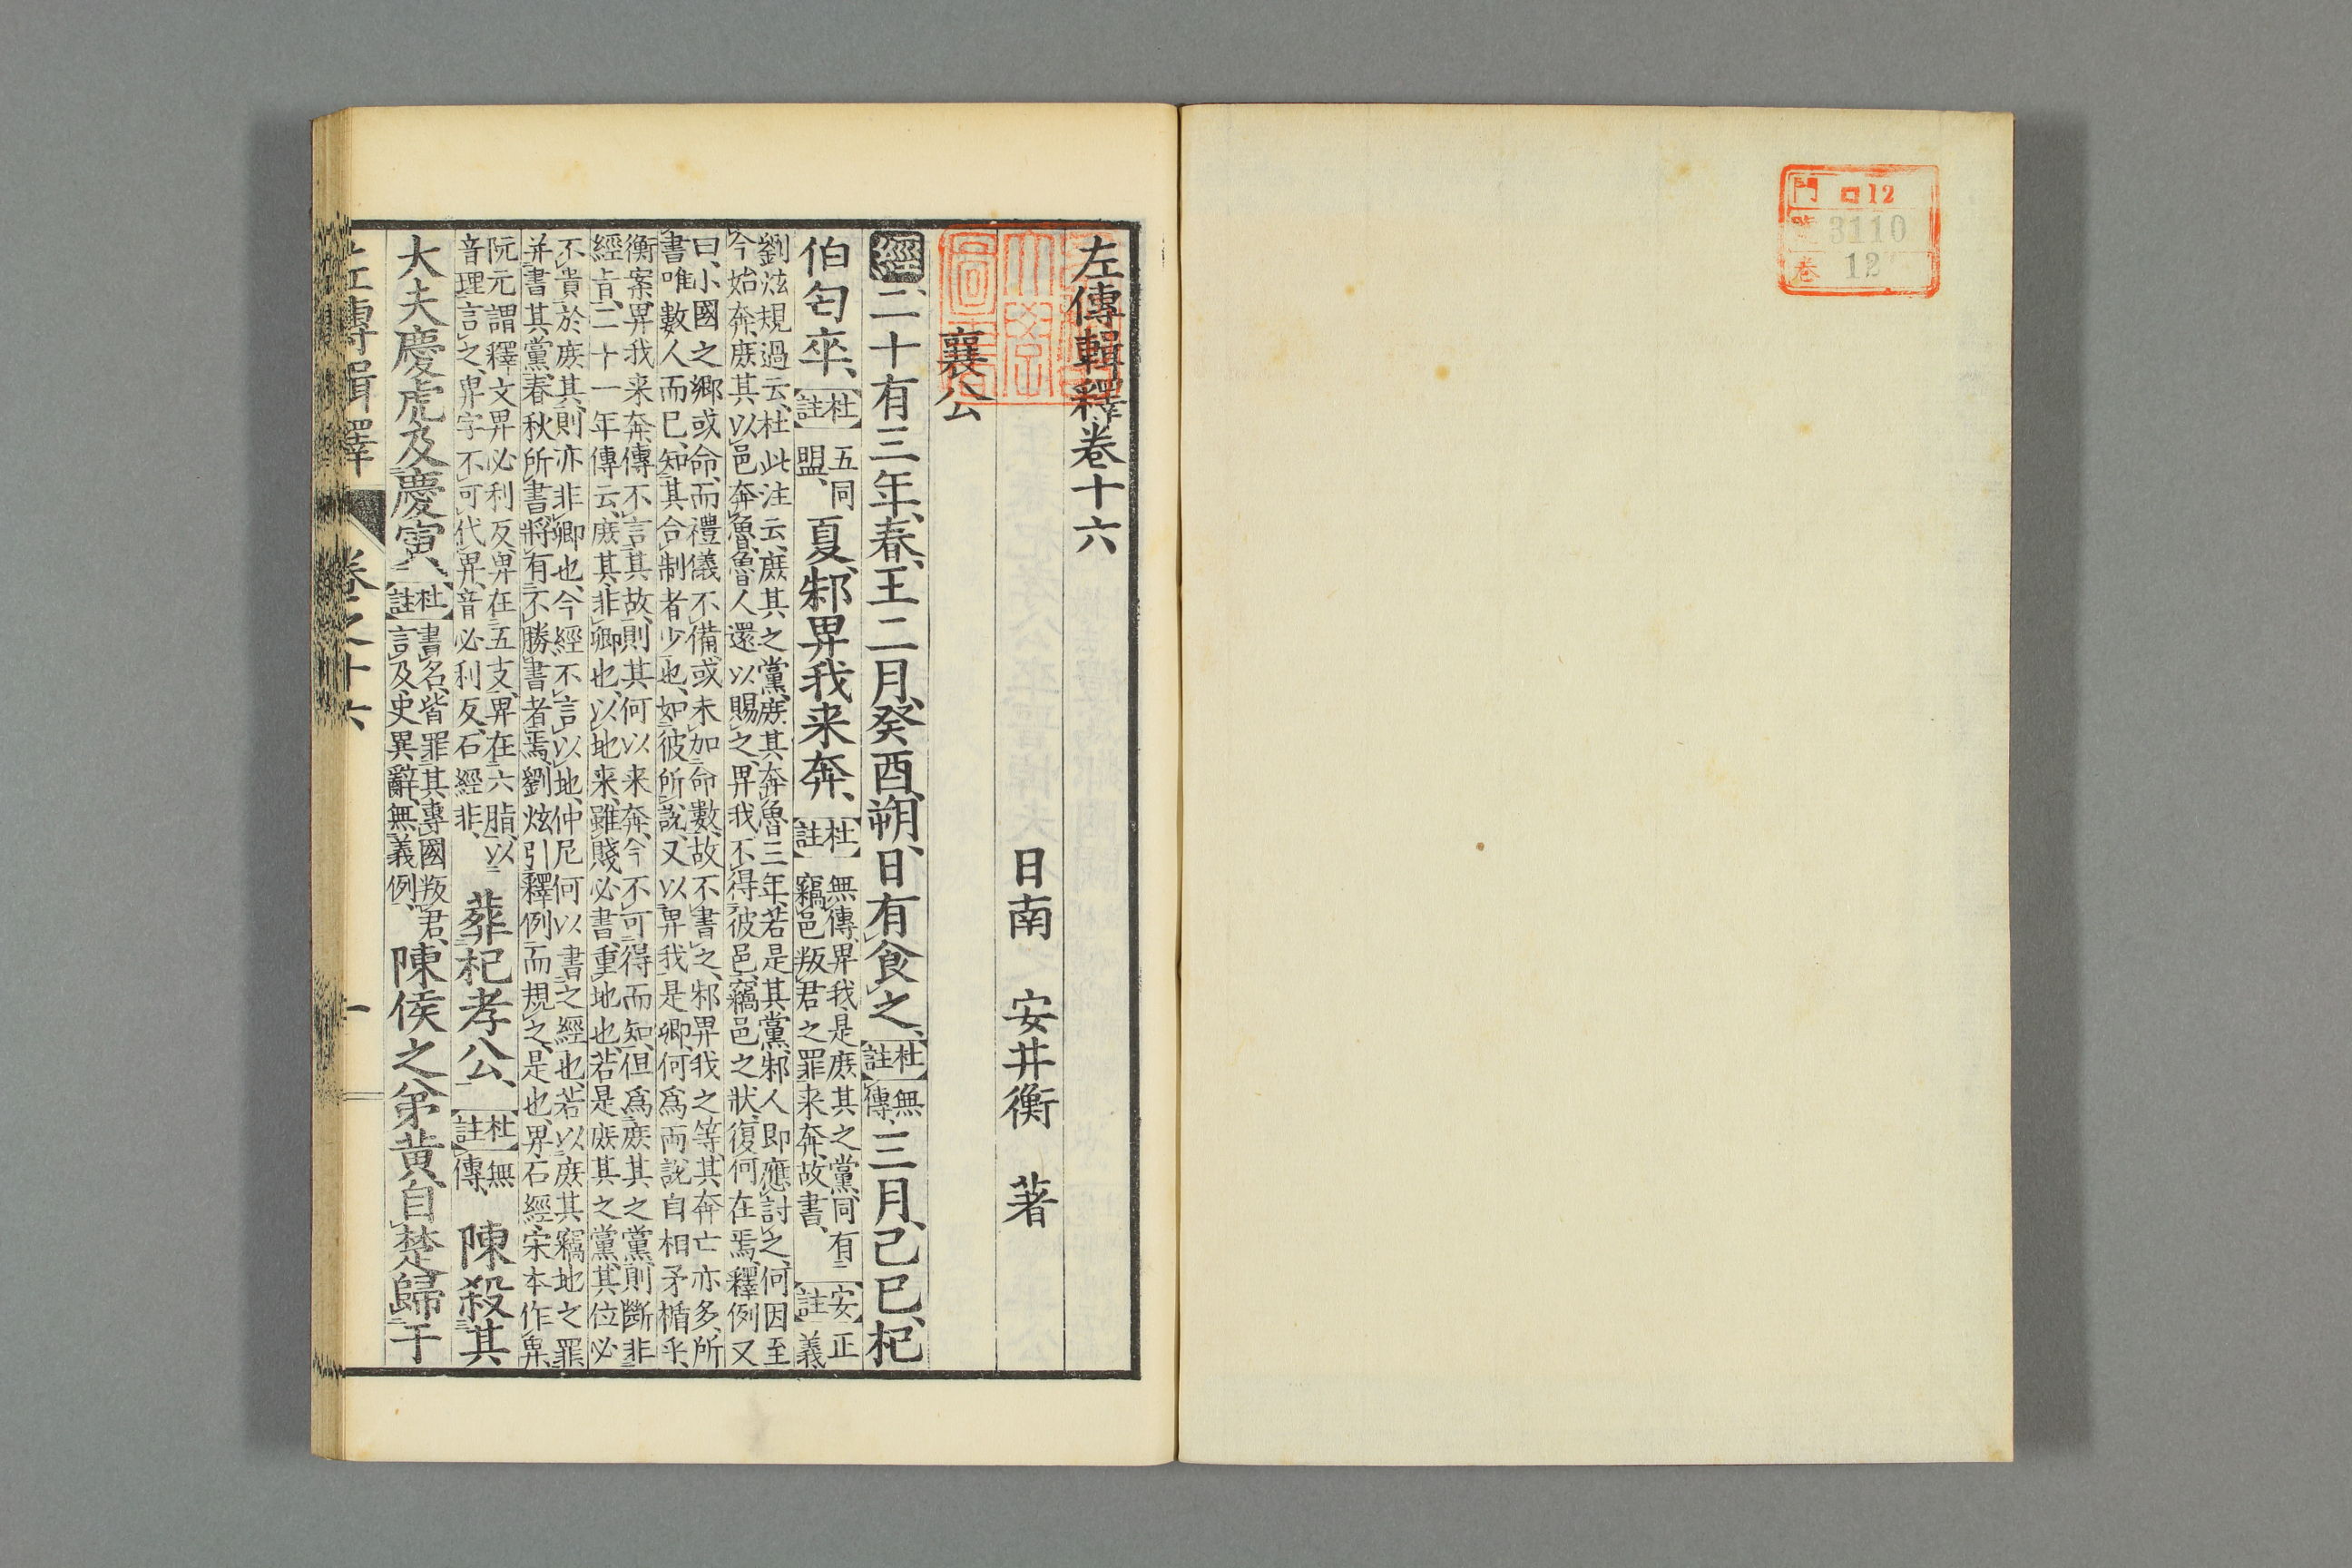 門 ロ12
號 3110
巻 12
左傳輯釋卷十六
日南 安井衡 著
襄公
經二十有三年、春、王二月、癸酉、朔、日有食之、【杜註】無傳、三月、己巳、杞
伯匄卒、【杜註】五同盟、夏、邾畀我来奔、【杜註】無傳、畀我是庶其之黨、同有竊邑叛君之罪来奔、故書、【安註】正義、
劉炫規過云、杜此注云、庶其之黨、庶其奔魯三年、若是其黨、邾人即應討之、何因至
今始奔、庶其以邑奔魯、魯人還以賜之、畀我不得彼邑、竊邑之狀、復何在焉、釋例又
曰、小國之卿、或命而禮儀不備、或未加命數、故不書之、邾畀我之等、其奔亡亦多、所
書唯數人而已、知其合制者少也、如彼所說、又以畀我是卿、何爲兩說自相矛楯乎、
衡案、畀我来奔、傳不言其故、則其何以来奔、今不可得而知、但爲庶其之黨、則斷非
經肯、二十一年傳云、庶其非卿也、以地来、雖賤必書、重地也、若是庶其之黨、其位必
不貴於庶其、則亦非卿也、今經不言以地、仲尼何以書之經也、若以庶其竊地之罪、
并書其黨、春秋所書、將有不勝書者焉、劉炫引釋例而規之、是也、畀、石經宋本作𢌿、
阮元謂釋文畀必利反、𢌿在五支、畀在六脂、以
音理言之、𢌿字不可代畀、音必利反、石經非、葬杞孝公、【杜註】無傳、陳殺其
大夫慶虎及慶寅、【杜註】書名、皆罪其專國叛君、言及、史異辭、無義例、陳侯之弟黄自楚歸于
左傳輯釋 卷之十六 一